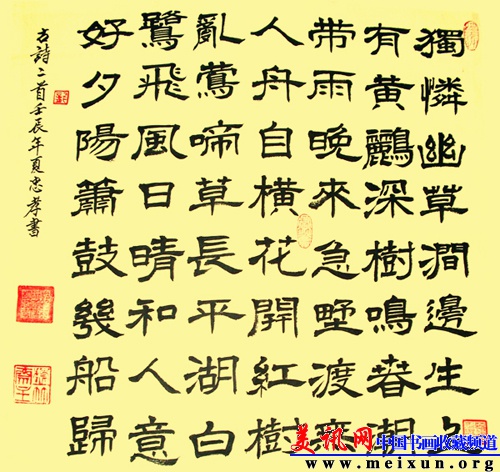 獨憐幽草澗邊生上
有黃鸝深樹鳴春潮
带雨晚來急墅渡無
人舟自橫花開紅樹
亂鶯啼草長平湖白
鷺飛風日晴和人意
好夕陽簫鼓幾船歸
古詩二首壬辰年夏忠孝書
美讯网 中国书画收藏频道
www.meixun.org